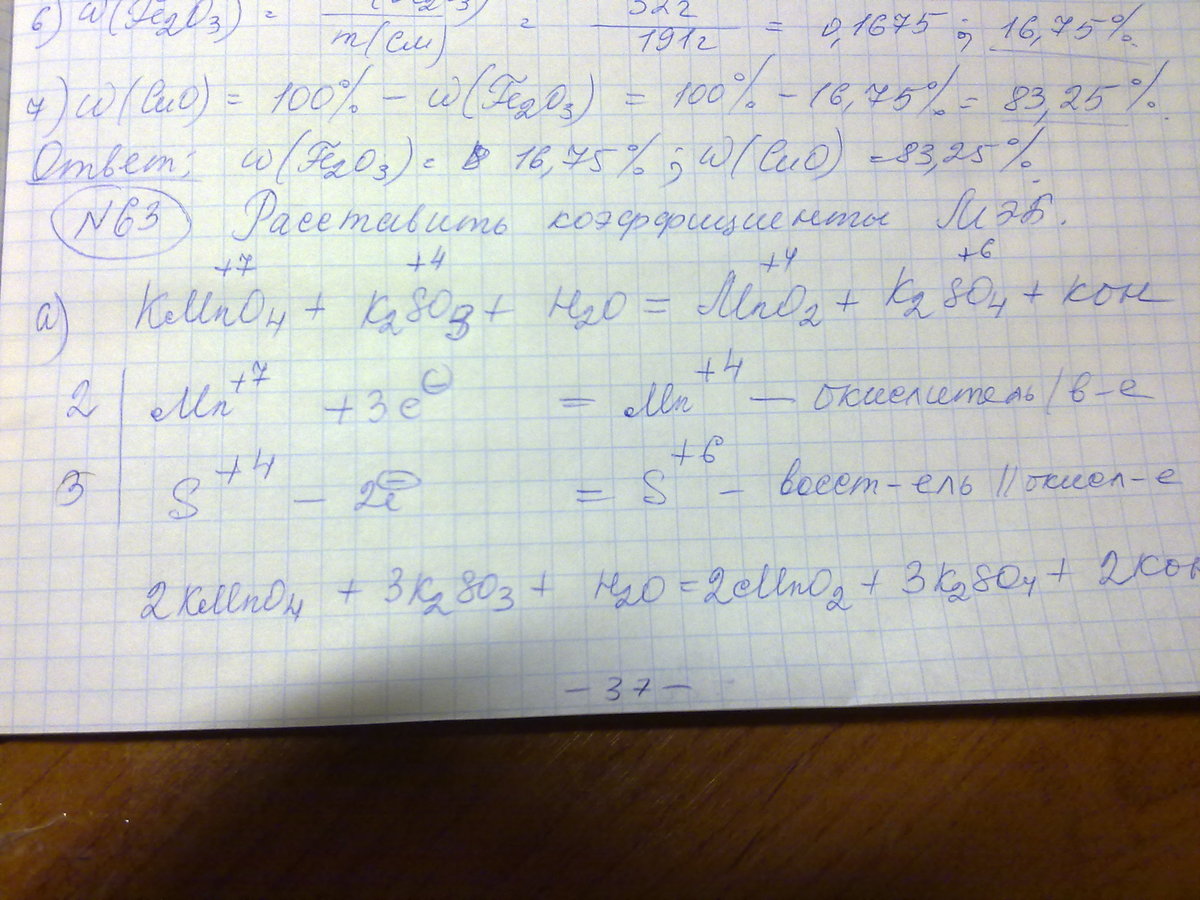 6) w(Fe2O3) = m(Fe2O3) / m(см) = 32г / 191г = 0,1675 ; 16,75%
7) w(CuO) = 100% - w(Fe2O3) = 100% - 16,75% = 83,25%.
Ответ: w(Fe2O3) = 16,75% ; w(CuO) = 83,25%.
N63 Расставить коэффициенты МЭБ.
+7 +4 +4 +6
а) KMnO4 + K2SO3 + H2O = MnO2 + K2SO4 + KOH
2 | Mn+7 + 3e⊖ = Mn+4 — окислитель / в-е
3 | S+4 - 2e⊖ = S+6 - восст-ель // окисл-е
2KMnO4 + 3K2SO3 + H2O = 2MnO2 + 3K2SO4 + 2KOH
- 37 -